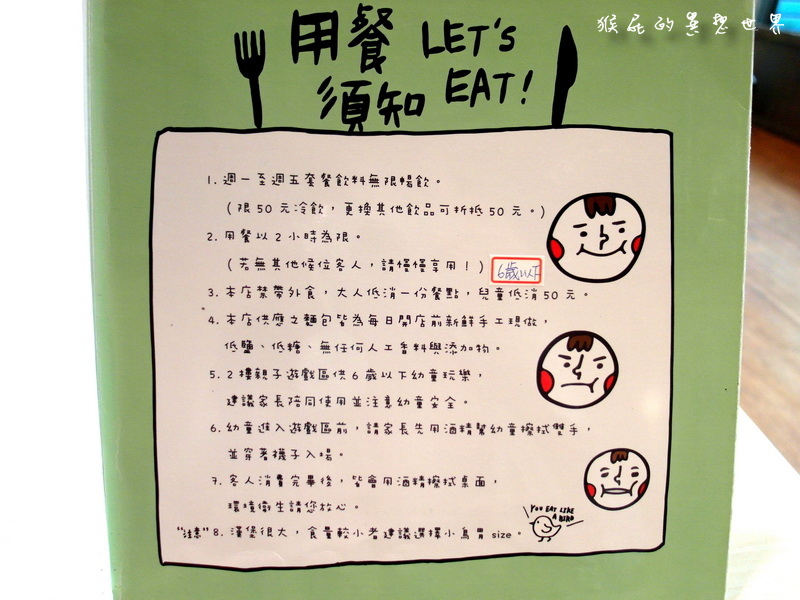 猴屁的異想世界
用餐 LET'S
須知 EAT!
1. 週一至週五套餐飲料無限暢飲。
(限50元冷飲,更換其他飲品可折抵50元。)
2. 用餐以2小時為限。
(若無其他候位客人,請慢慢享用!)
6歲以下
3. 本店禁帶外食,大人低消一份餐點,兒童低消50元。
4. 本店供應之麵包皆為每日開店前新鮮手工現做,
低鹽、低糖、無任何人工香料與添加物。
5. 2樓親子遊戲區供6歲以下幼童玩樂,
建議家長陪同使用並注意幼童安全。
6. 幼童進入遊戲區前,請家長先用酒精幫幼童擦拭雙手,
並穿著襪子入場。
7. 客人消費完畢後,皆會用酒精擦拭桌面,
環境衛生請您放心。
YOU EAT LIKE
A BIRD
"注意" 8. 漢堡很大,食量較小者建議選擇小鳥胃size。